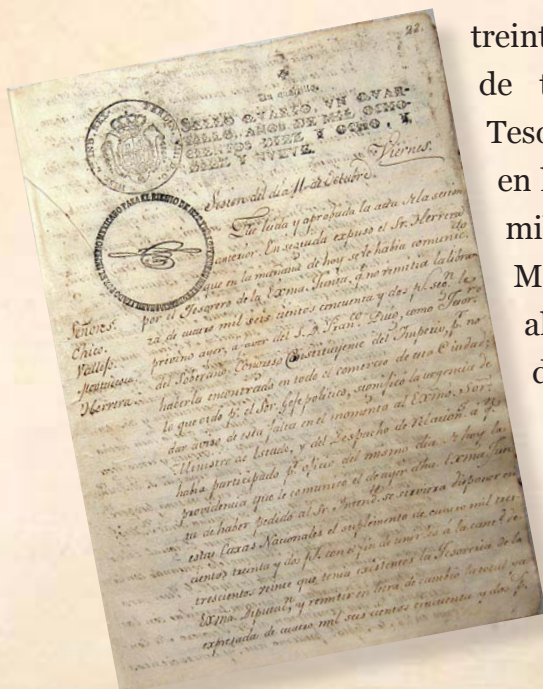 22.
Un quartillo.
SELLO QVARTO, VN QVAR-
TILLO, AÑOS DE MIL OCHO-
CIENTOS DIEZ Y OCHO, Y
DIEZ Y NUEVE.
Viernes.
Sesion del dia 11 de Octubre.
Fue leida y aprobada la acta de la sesion
anterior. En seguida expuso el Sr. Herrera
que en la mañana de hoy se le habia comunicado
por el Tesorero de la Exma. Junta, q.e no remitia la libran
za de cuatro mil seis cientos cincuenta y dos p.s. seg.n le
previno ayer, a favor del S. D. Fran.co
del Soberano Congreso Constituyente del Imperio, p.r no
haberla encontrado en todo el comercio de esta Ciudad;
lo que oido p.r el Sor. Gefe politico, significó la urgencia de
dar aviso de esta falta en el momento al Exmo. Sor.
Ministro de Estado, y del Despacho de
habia participado p.r oficio del mismo dia de hoy la
providencia que le comunicó el de ayer dha. Exma. Jun
ta de haber pedido al Sr. Intend.te se sirviera disponer en
estas Caxas Nacionales el suplemento de cuatro mil tres
cientos treinta y dos p.s. con el fin de unirlos a la cant.d de
trescientos veinte que tenia existentes la Tesoreria de la
Exma. Diputa.n, y remitir en letra de cambio la total ya
expresada de cuatro mil seis cientos cincuenta y dos p.s
Señores.
Chico.
Valle.
Montufar
Herrera.
treint
de t
Teso
en l
mi
M
al
d